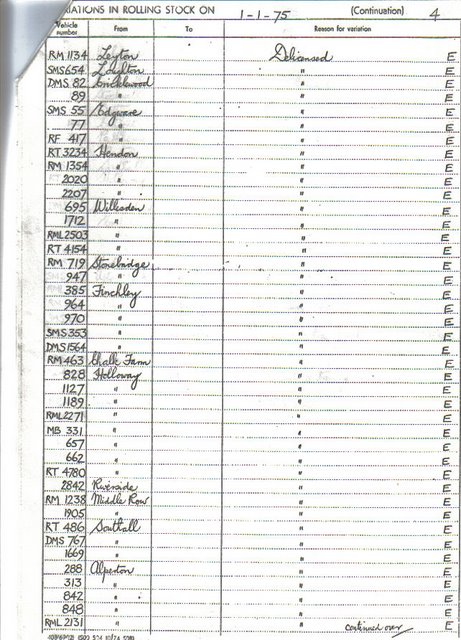 VARIATIONS IN ROLLING STOCK ON 1-1-75 (Continuation) 4
Vehicle number From To Reason for variation
RM 1134 Leyton Delicensed E
SMS 654 Loughton " E
DMS 82 Cricklewood " E
89 " " E
SMS 55 Edgware " E
77 " " E
RF 417 " " E
RT 3234 Hendon " E
RM 1354 " " E
2020 " " E
2207 " " E
695 Willesden " E
1712 " " E
RML 2503 " " E
RT 4154 " " E
RM 719 Stonebridge " E
947 " " E
385 Finchley " E
964 " " E
970 " " E
SMS 353 " " E
DMS 1564 " " E
RM 463 Chalk Farm " E
828 Holloway " E
1127 " " E
1189 " " E
RML 2271 " " E
MB 331 " " E
657 " " E
662 " " E
RT 4780 " " E
2842 Riverside " E
RM 1238 Middle Row " E
1905 " " E
RT 486 Southall " E
DMS 767 " " E
1669 " " E
288 Alperton " E
313 " " E
842 " " E
848 " " E
RML 2131 " " continued over E